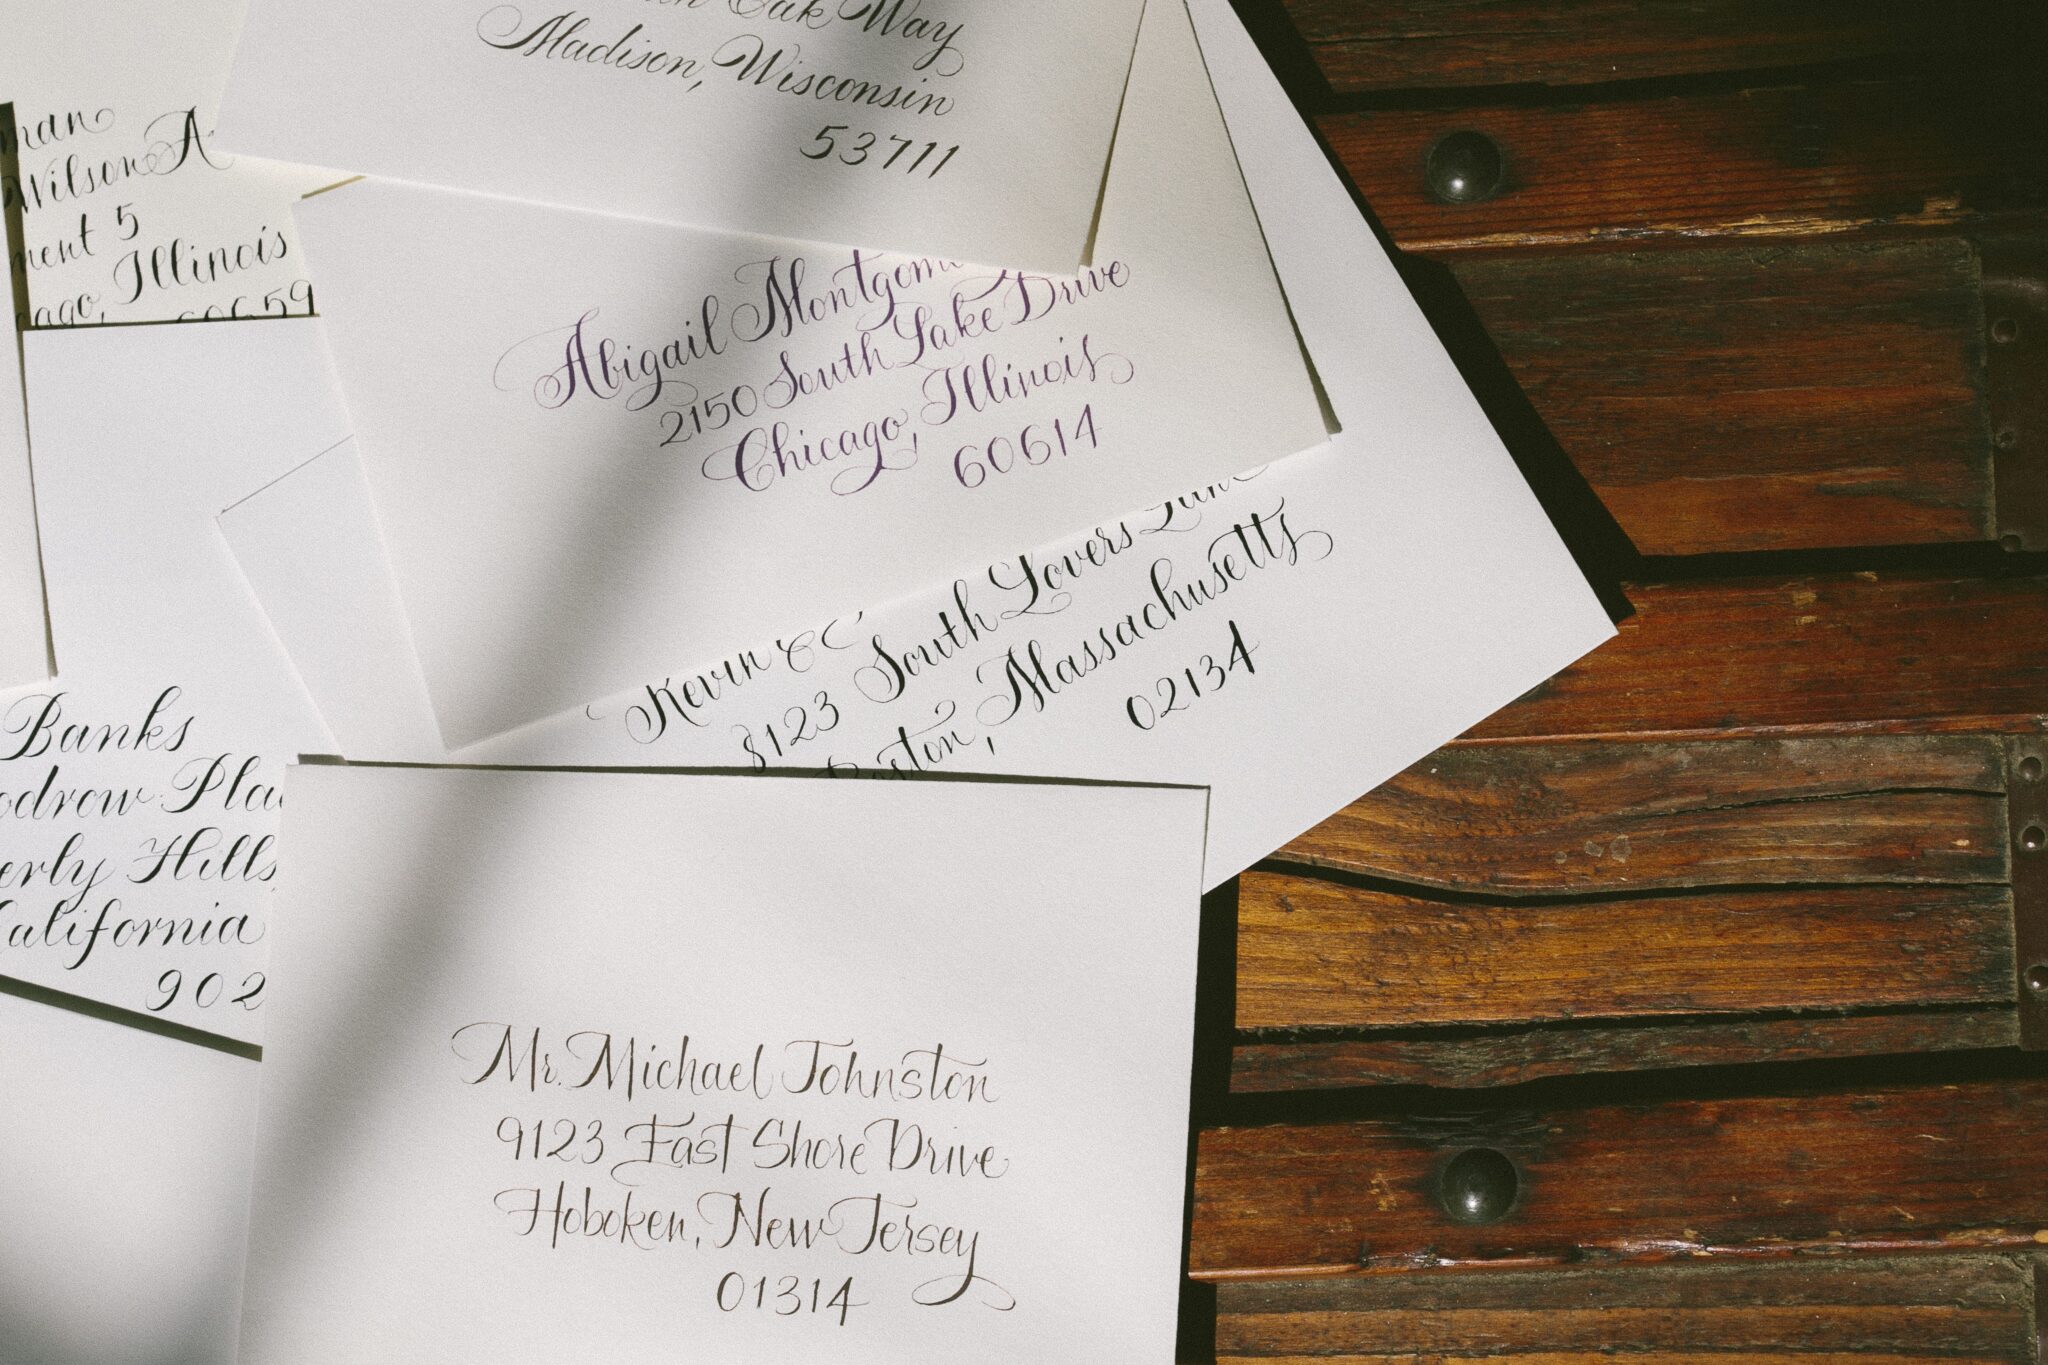 Oak Way
Madison, Wisconsin
53711
Wilson A
5
Illinois
60659
Abigail
2150 South Lake Drive
Chicago, Illinois
60614
Kevin &
8123 South Lovers
Boston, Massachusetts
02134
Banks
Hills,
California
902
Mr. Michael Johnston
9123 East Shore Drive
Hoboken, New Jersey
01314